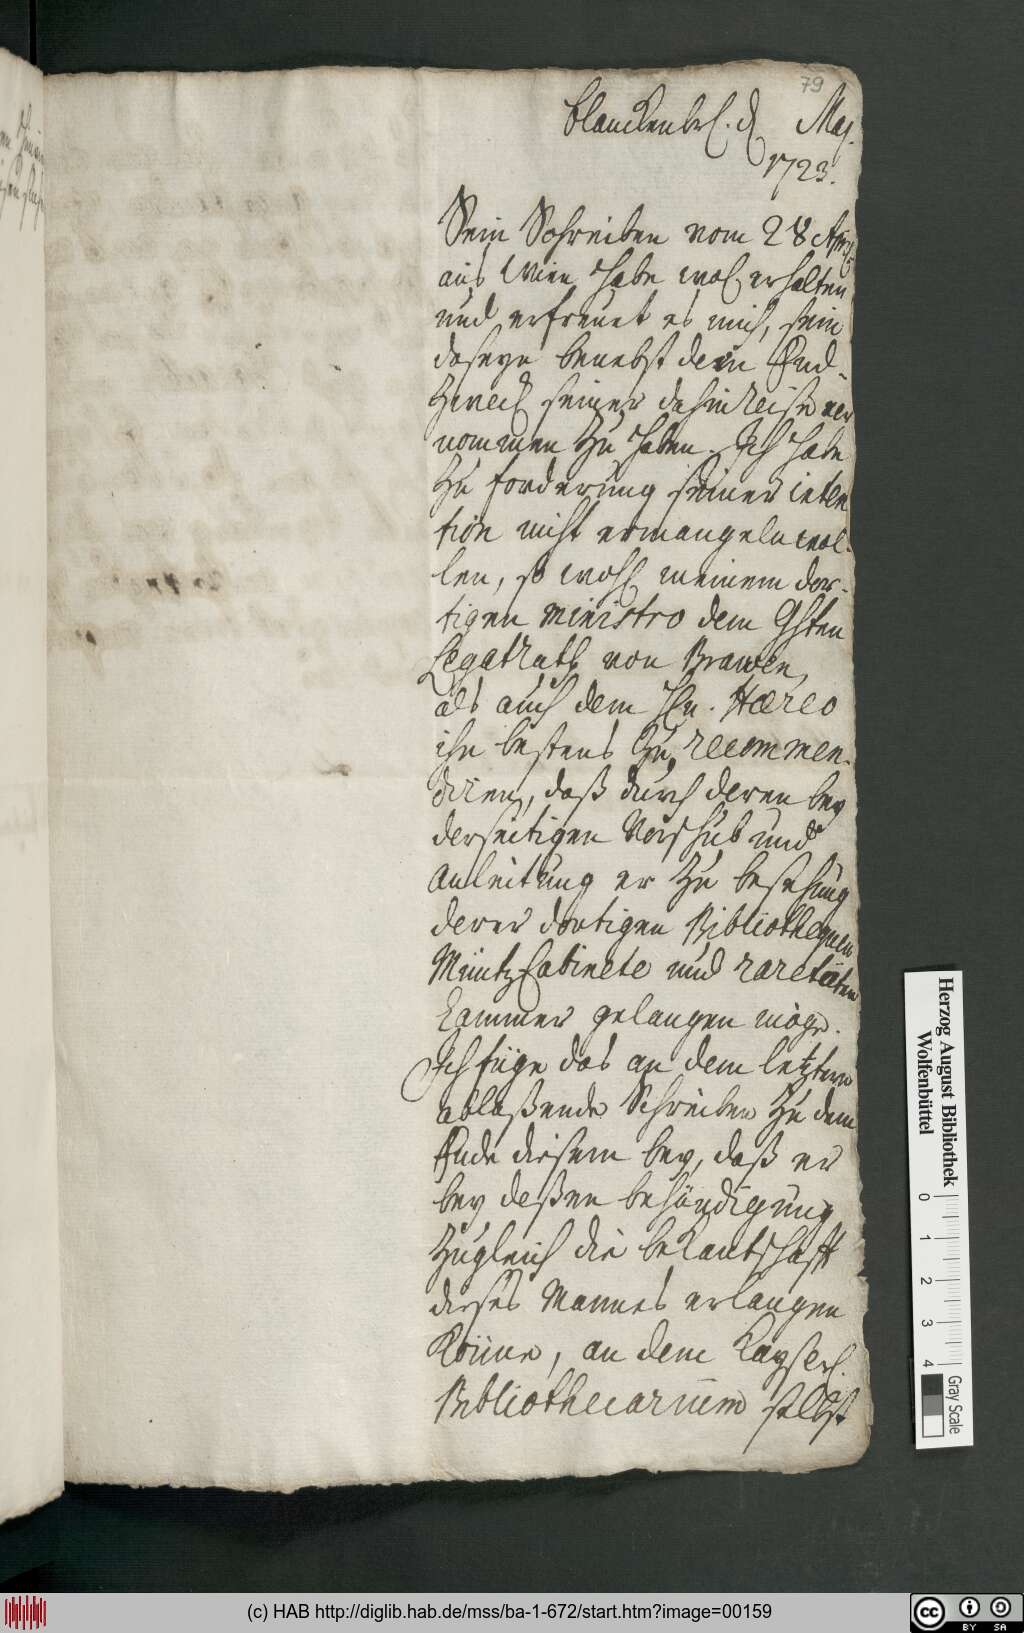 79
Blanckenb. d Maj.
1723.
Sein Schreiben vom 28 April
aus Wien habe wol erhalten
und erfreuet es mich, sein
daseyn benebst dem End-
zweck seiner dahinreise ver
nommen zu haben. Ich habe
zu forderung seiner inten
tion nicht ermangeln wol-
len, so wohl meinem dor-
tigen Ministro dem
LegatRath von Brawen,
als auch dem Hn. Hæreo
ihn bestens zu recommen-
diren, daß durch deren bey
derseitigen Vorschub und
anleitung er zu besehung
derer dortigen Bibliothequen
MüntzCabinete und raretäten
Kammer gelangen möge.
Ich füge das an dem letztern
ablaßende Schreiben zu dem
Ende diesem bey, daß er
bey deßen behändigung
zugleich die bekantschafft
dieses Mannes erlangen
könne, an dem Kayserl.
Bibliothecarium selbst
Herzog August Bibliothek
Wolfenbüttel
0 1 2 3 4
Gray Scale
(c) HAB http://diglib.hab.de/mss/ba-1-672/start.htm?image=00159
cc BY SA